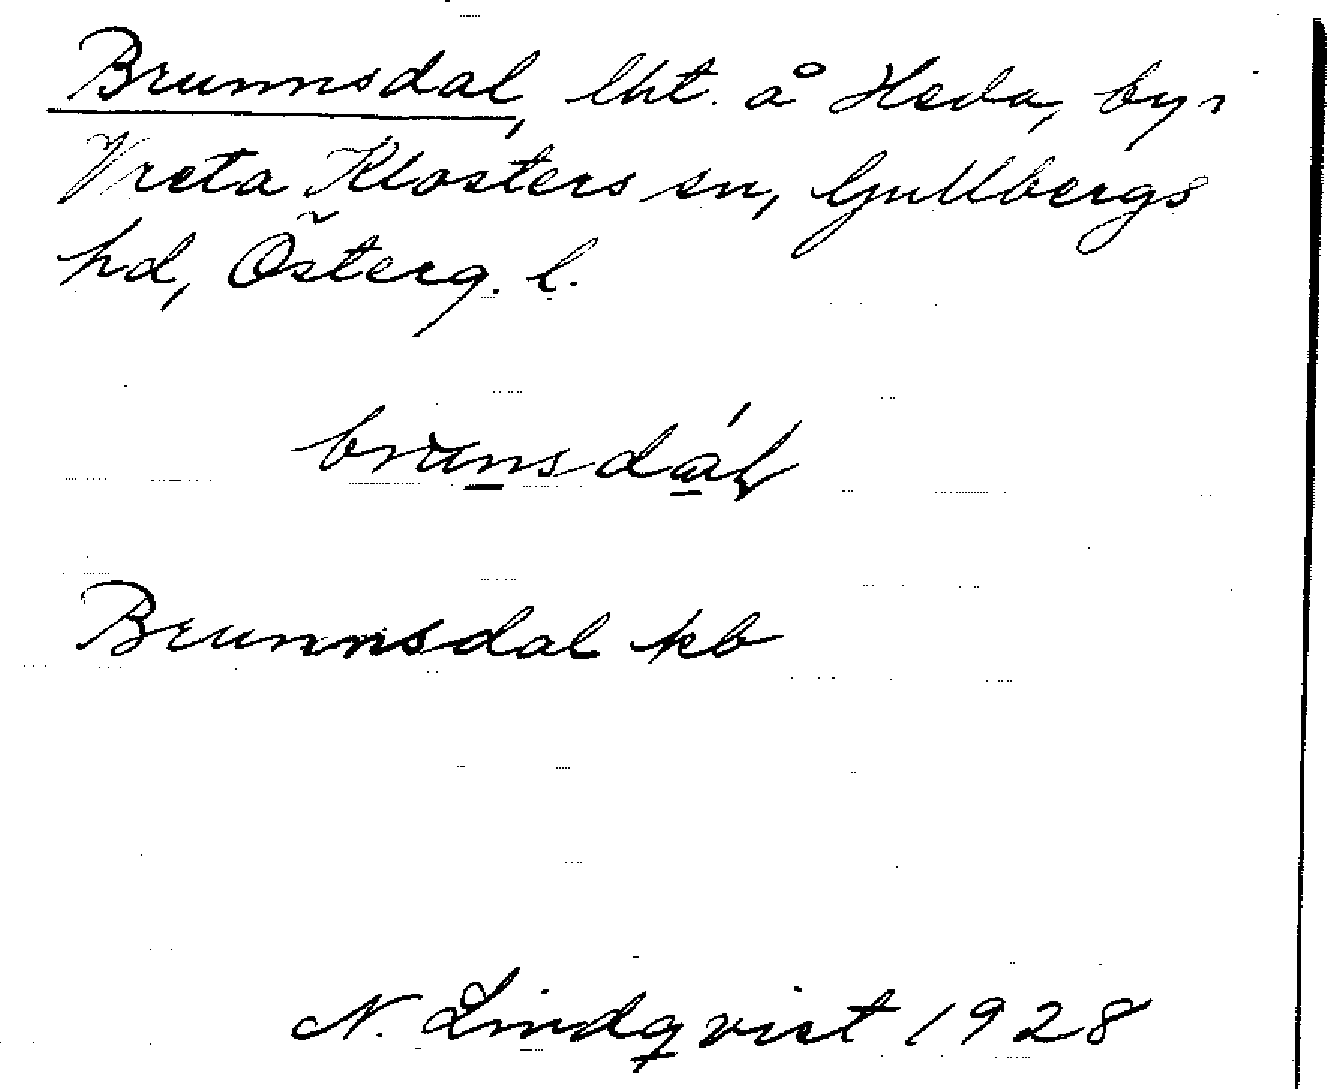 Brunnsdal, lht. å Heda, by i
Vreta Klosters sn, Gullbergs
hd, Österg. l.
brunsdál
Brunnsdal kb
N. Lindqvist 1928